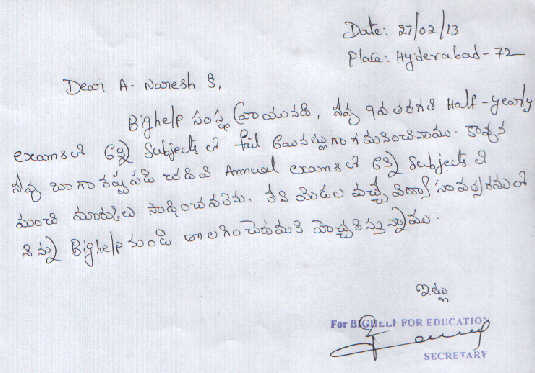 Date: 27/02/13
place: Hyderabad-72
Dear A- Naresh S,
Bighelp సంస్థ వ్రాయునది, నీవు 9వ తరగతి Half-yearly
exams లో అన్ని Subjects లో fail అయినట్లుగా గమనించినాము. కావున
నీవు బాగా కష్టపడి చదివి Annual exams లో అన్ని Subjects లో
మంచి మార్కులు సాధించవలెను. లేని యెడల వచ్చే విద్యా సంవత్సరములో
నిన్ను Bighelp నుండి తొలగించెదమని హెచ్చరిస్తున్నాము.
ఇట్లు
For BIGHELP FOR EDUCATION
SECRETARY